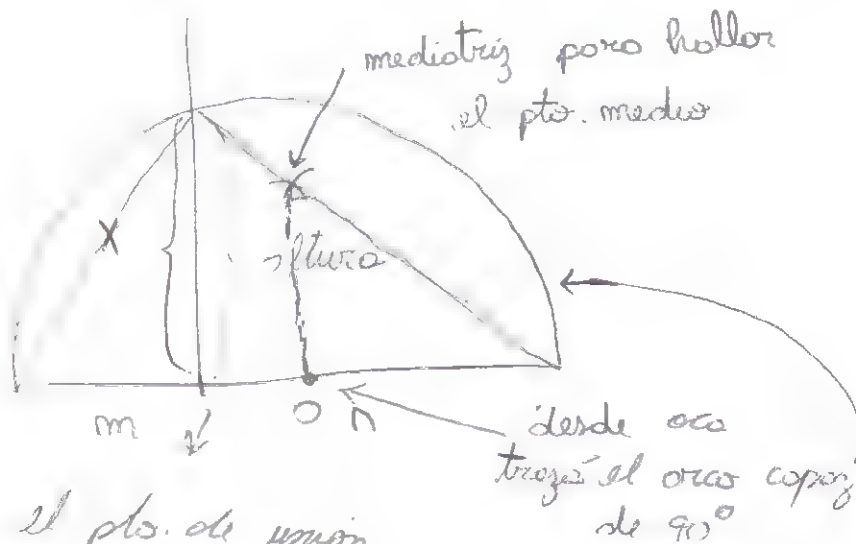 mediatriz para hallar
el pto. medio
X
altura
m
O n
desde aca
trazá el arco capaz
de 90°
el pto. de unión